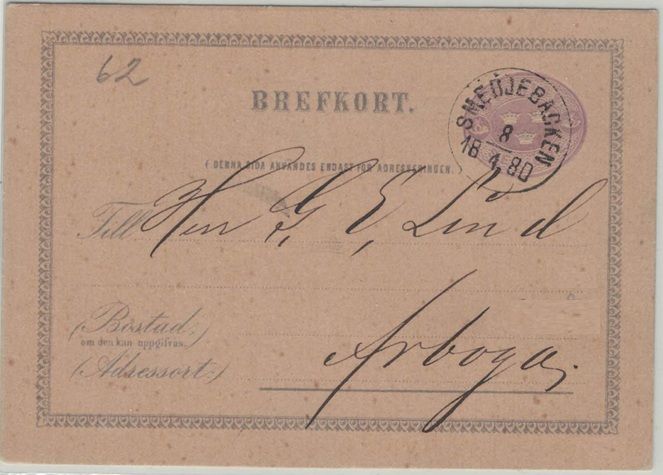 62
BREFKORT.
SMEDJEBACKEN
8
18 4 80
(DENNA SIDA ANVÄNDES ENDAST FÖR ADRESSERINGEN.)
Till Herr G, E, Lind
(Bostad:)
om den kan uppgifvas.
Arboga.
(Adressort:)